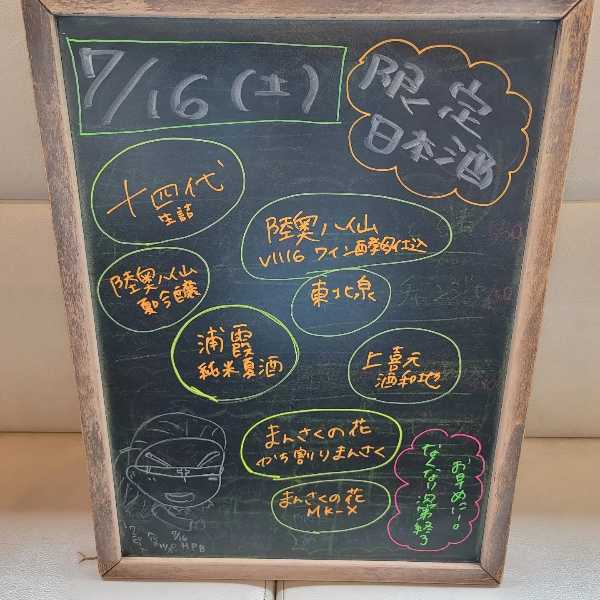 7/16(土)
限定
日本酒
十四代
生詰
陸奥八仙
V1116 ワイン酵母仕込
陸奥八仙
夏吟醸
東北泉
浦霞
純米夏酒
上喜元
酒和地
まんさくの花
かち割りまんさく
まんさくの花
MK-X
お早めに!。
なくなり次第終了
7/16
HPB